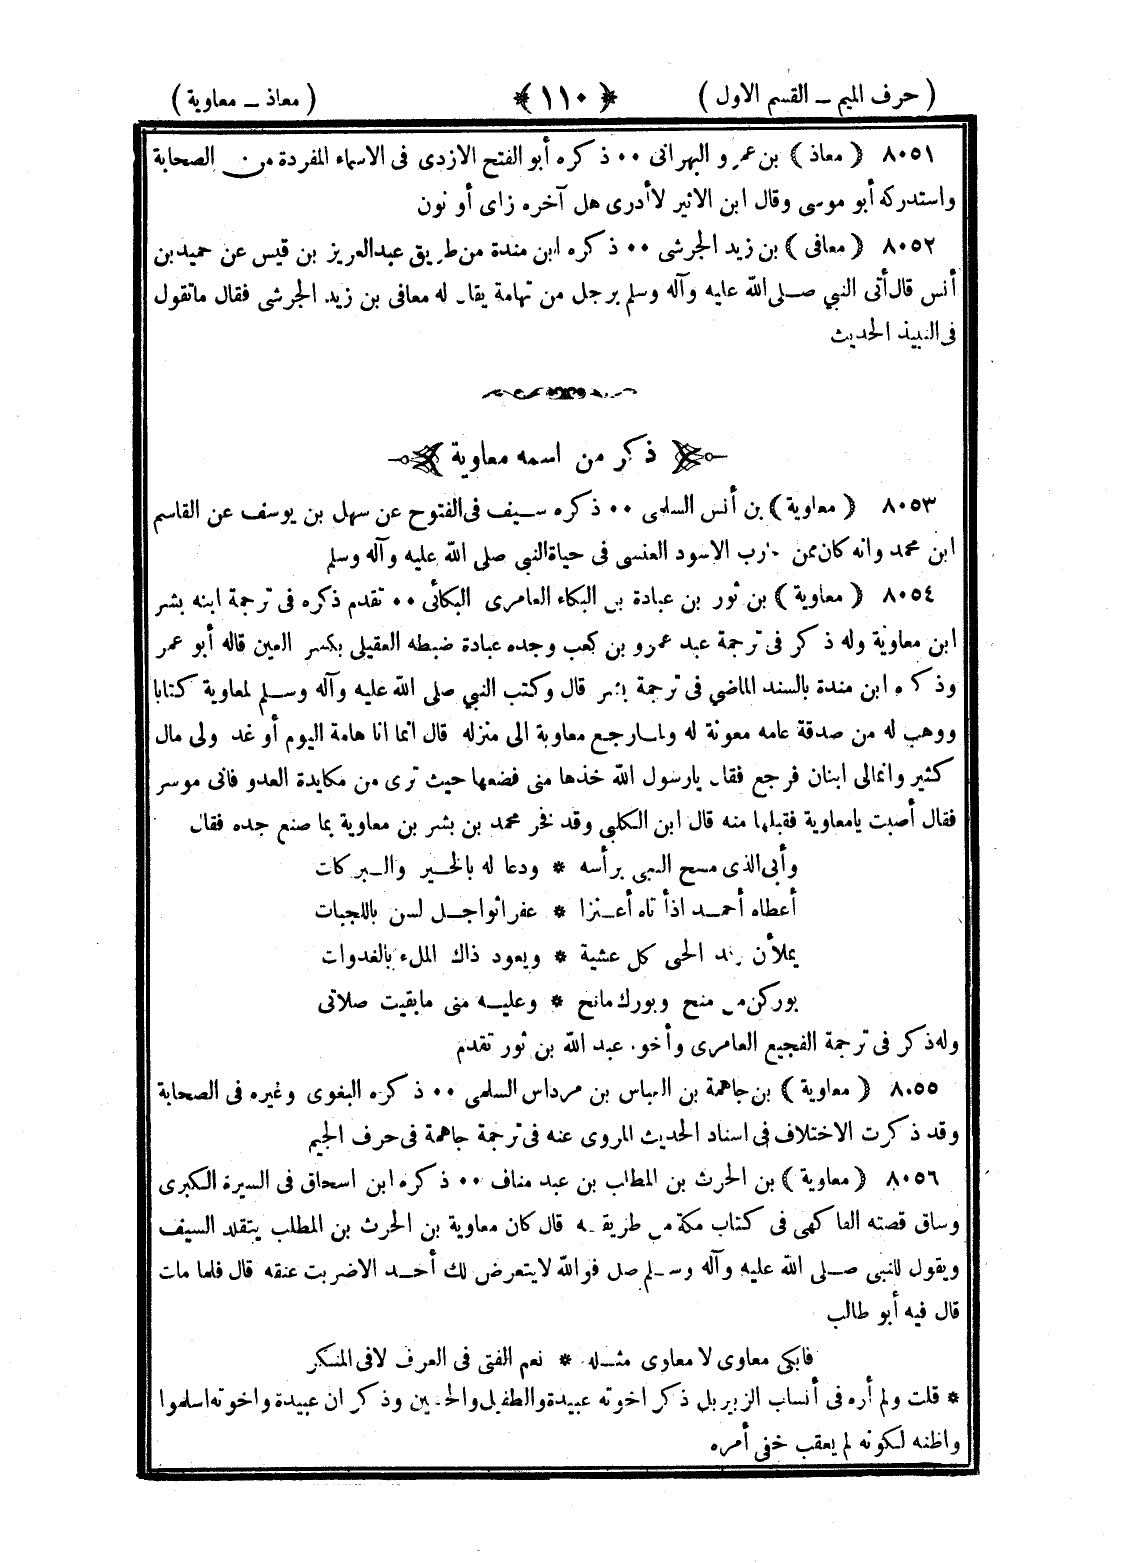 ( حرف الميم ــ القسم الاول ) ﴿ ١١٠ ﴾ ( معاذ ــ معاوية )
٨٠٥١ ( معاذ ) بن عمرو البهرانى ٠٠ ذكره أبو الفتح الازدى فى الاسماء المفردة من الصحابة
واستدركه أبو موسى وقال ابن الاثير لاأدرى هل آخره زاى أو نون
٨٠٥٢ ( معافى ) بن زيد الجرشى ٠٠ ذكره ابن مندة من طريق عبدالعزيز بن قيس عن حميد بن
أنس قال أتى النبي صلى الله عليه وآله وسلم برجل من تهامة يقال له معافى بن زيد الجرشى فقال ماتقول
فى النبيذ الحديث
ذكر من اسمه معاوية
٨٠٥٣ ( معاوية ) بن أنس السلمى ٠٠ ذكره سيف فى الفتوح عن سهل بن يوسف عن القاسم
ابن محمد وانه كان ممن حارب الاسود العنسى فى حياة النبى صلى الله عليه وآله وسلم
٨٠٥٤ ( معاوية ) بن ثور بن عبادة بن البكاء العامرى البكائى ٠٠ تقدم ذكره فى ترجمة ابنه بشر
ابن معاوية وله ذكر فى ترجمة عبد عمرو بن كعب وجده عبادة ضبطه العقيلى بكسر العين قاله أبو عمر
وذكره ابن مندة بالسند الماضى فى ترجمة بشر قال وكتب النبي صلى الله عليه وآله وسلم لمعاوية كتابا
ووهب له من صدقة عامه معونة له ولما رجع معاوية الى منزله قال انما انا هامة اليوم أو غد ولى مال
كثير وانمالى ابنان فرجع فقال يارسول الله خذها منى فضعها حيث ترى من مكايدة العدو فانى موسر
فقال أصبت يامعاوية فقبلها منه قال ابن الكلبي وقد فخر محمد بن بشر بن معاوية بما صنع جده فقال
وأبى الذى مسح النبى برأسه * ودعا له بالخير والبركات
أعطاه أحمد اذأتاه أعنزا * عفرا نواجل لسن باللجبات
يملأن رفد الحى كل عشية * ويعود ذاك الملء بالغدوات
بوركن من منح وبورك مانح * وعليه منى مابقيت صلاتى
وله ذكر فى ترجمة الفجيع العامرى وأخوه عبد الله بن ثور تقدم
٨٠٥٥ ( معاوية ) بن جاهمة بن العباس بن مرداس السلمى ٠٠ ذكره البغوى وغيره فى الصحابة
وقد ذكرت الاختلاف فى اسناد الحديث المروى عنه فى ترجمة جاهمة فى حرف الجيم
٨٠٥٦ ( معاوية ) بن الحرث بن المطلب بن عبد مناف ٠٠ ذكره ابن اسحاق فى السيرة الكبرى
وساق قصته الفاكهى فى كتاب مكة من طريقه قال كان معاوية بن الحرث بن المطلب يتقلد السيف
ويقول للنبى صلى الله عليه وآله وسلم صل فوالله لايتعرض لك أحد الاضربت عنقه قال فلما مات
قال فيه أبو طالب
فابكى معاوى لا معاوى مثله * نعم الفتى فى العرف لافى المنكر
* قلت ولم أره فى أنساب الزبير بل ذكر اخوته عبيدة والطفيل والحصين وذكر ان عبيدة واخوته اسلموا
واظنه لكونه لم يعقب خفى أمره